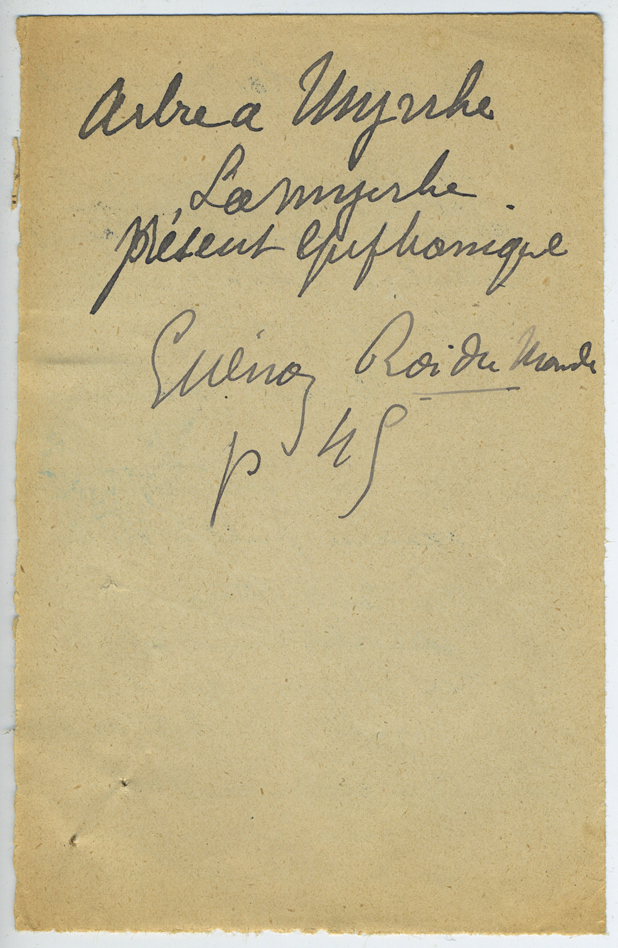 Arbre a Myrrhe
La myrrhe
présent Epiphanique
Guénon Roi du Monde
p 45